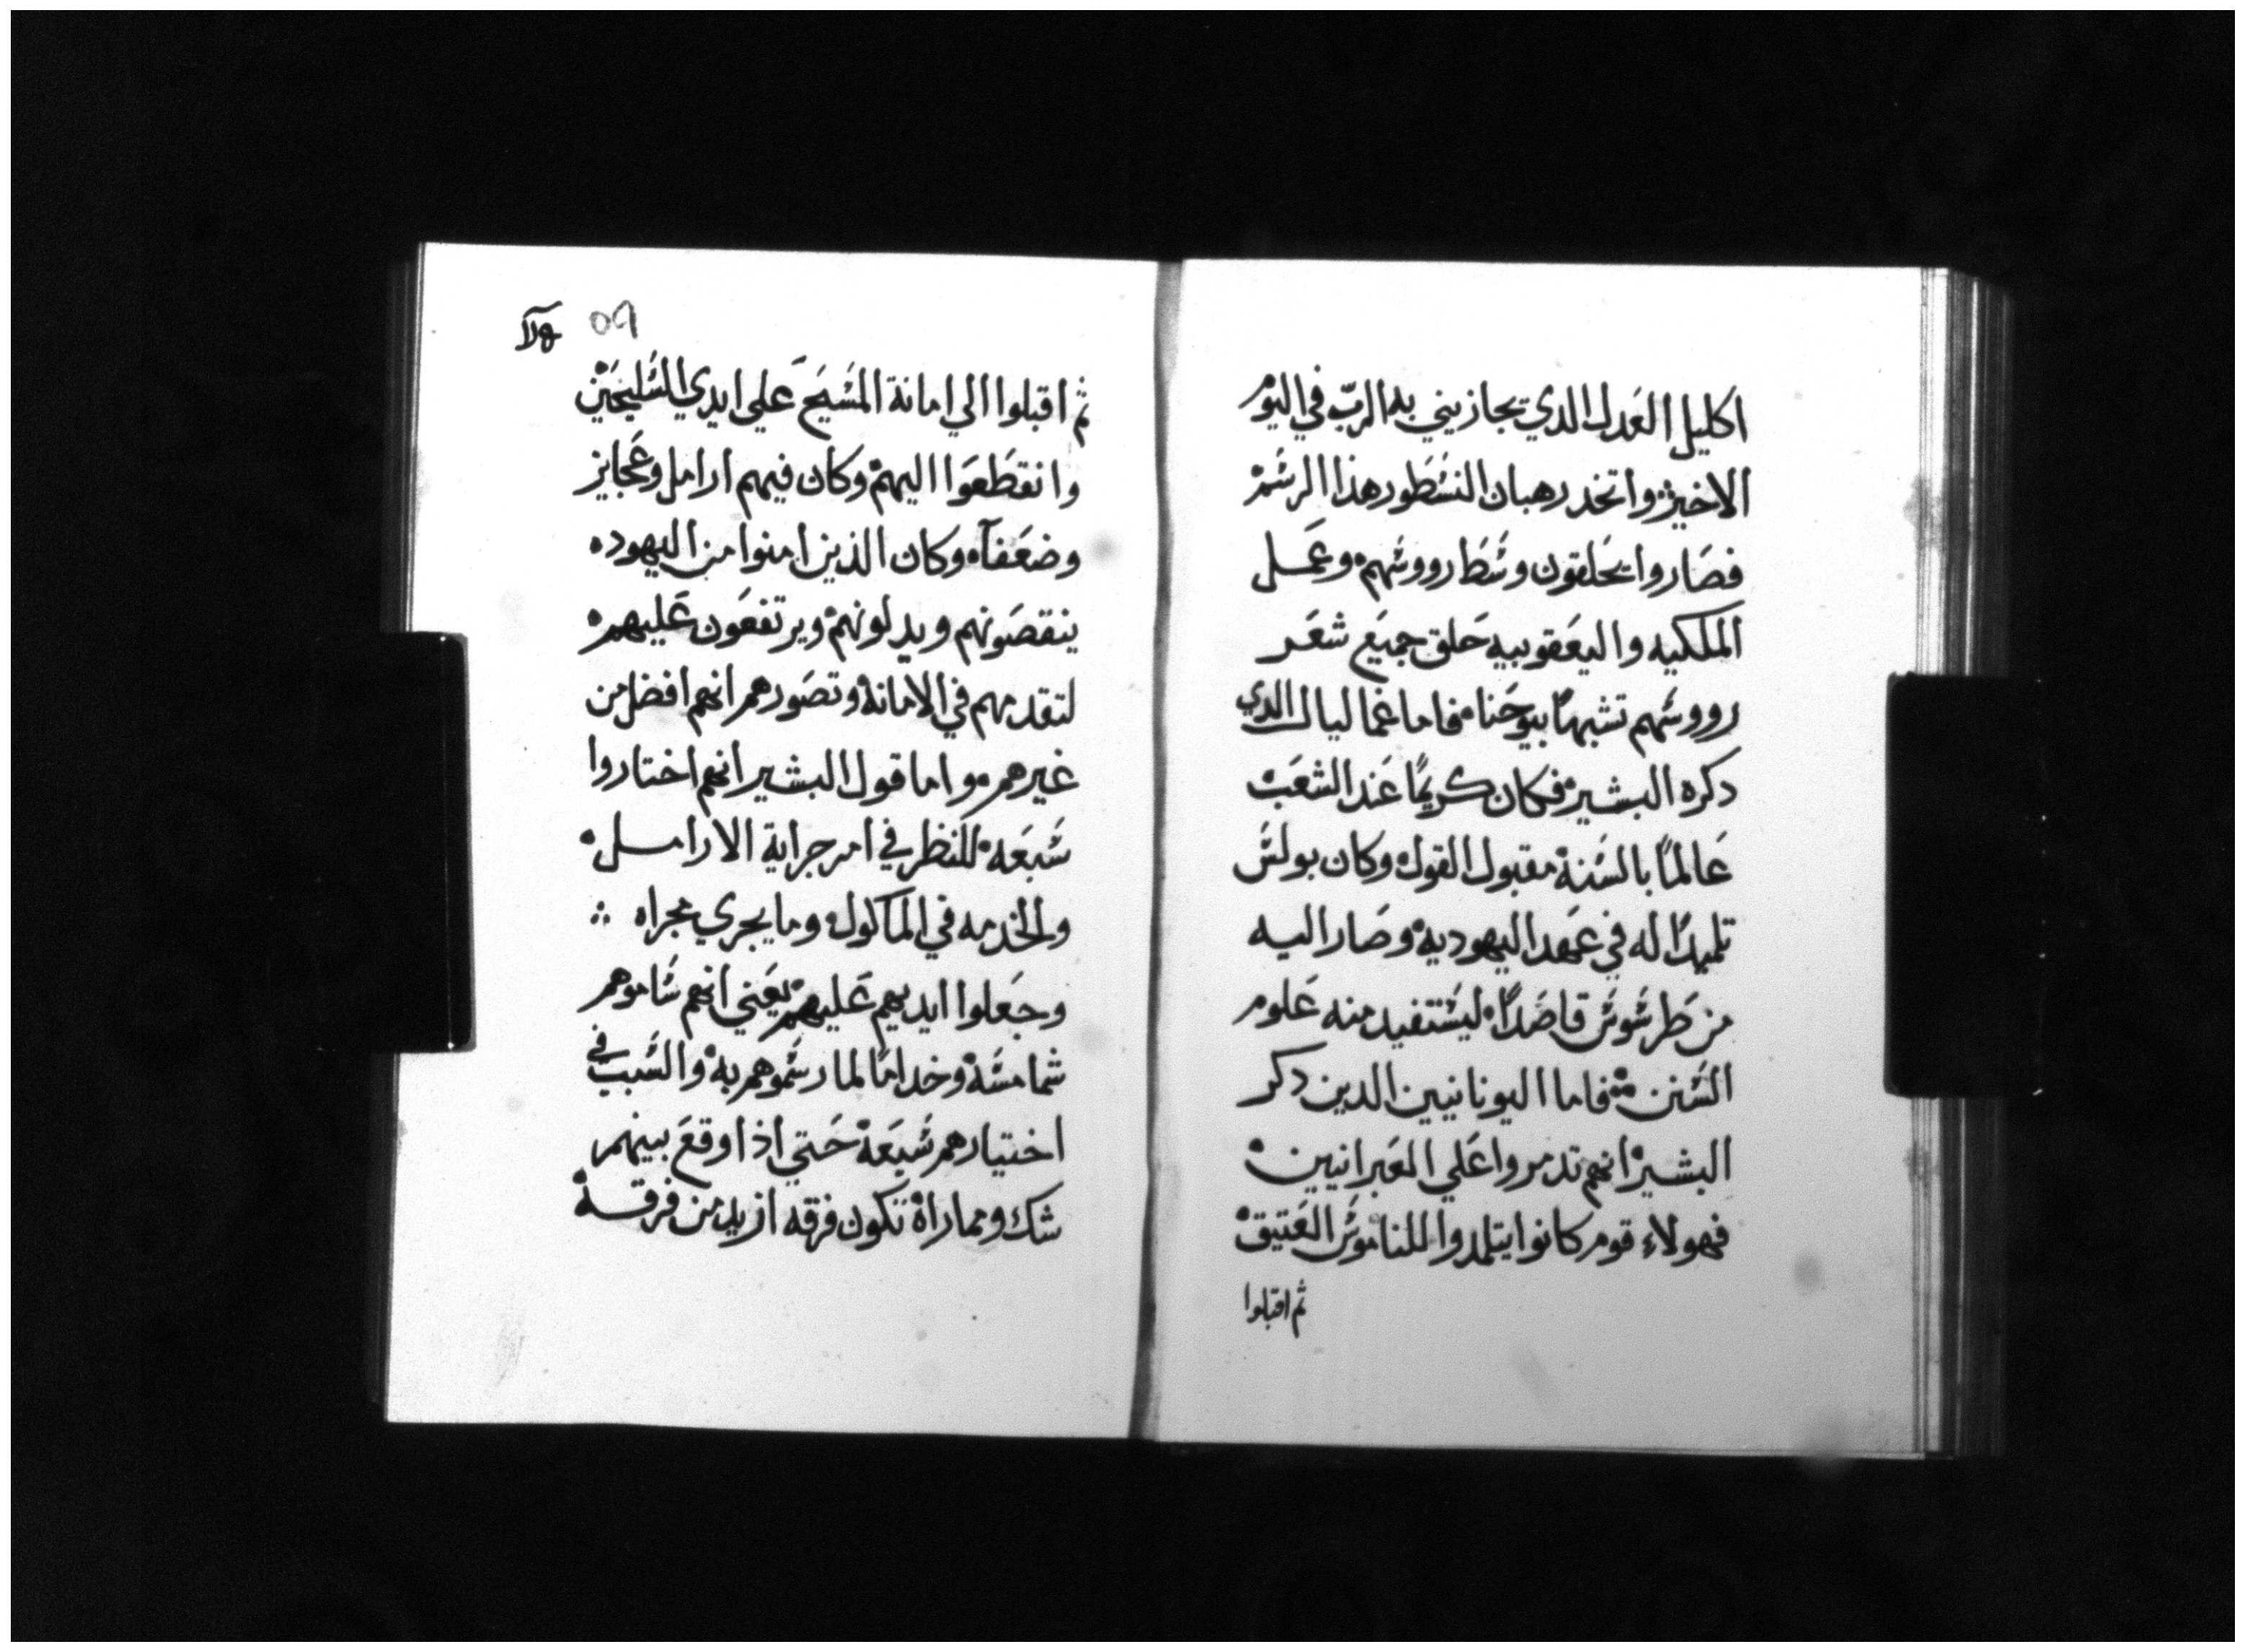 اكليل العَدل الدي يجازيني به الربّ في اليوم
الاخير۰ واتخد رهبان النسَطور هذا الرسَمْ
فصَاروا يحَلقون وسَطَ رووسَهم۰ وعَمل
الملكيه واليعَقوبيه حَلق جميَع شعَر
رووسَهم تشبهًا بيوحَنا۰ فاما غمالیال الدي
دكره البشير۰ فكان كريمًا عَند الشعَب
عَالمًا بالسَنة مقبول القول۰ وكان بولسَ
تلميدًا له في عَهد اليهودية۰ وصَار اليه
من طَرسَوسَ قاصَدًا۰ ليسَتفيد منه عَلوم
السَنن۰ فاما اليونانيين الدين دكر
البشير انهم تدمروا عَلي العَبرانيين۰
فهولاء قوم كانوا يتلمدوا للناموسَ العَتيق۰
ثم اقبلوا
٥٩
ثم اقبلوا الي امانة المسَيَح عَلي ايدي السَليحَين
وانقطَعَوا اليهم۰ وكان فيهم ارامل وعَجايز
وضعَفآ۰ وكان الذين امنوا من اليهود۰
ينقصَونهم ويدلونهم۰ ويرتفعَون عَليهم۰
لتقدمهم في الامانة۰ وتصَورهم انهم افضل من
غيرهم۰ واما قول البشير انهم اختاروا
سَبعَة۰ للنظر في امر جراية الارامل۰
والخدمه في الماكول۰ وما يجري مجراه ∴
وجَعَلوا ايديهم عَليهم۰ يعَني انهم سَاموهم
شمامسَة۰ وخدامًا لما رسَموهم به۰ والسَبب في
اختيارهم سَبعَة۰ حَتي اذا وقعَ بينهم
شك ومماراة۰ تكون فرقه ازيد من فرقة۰